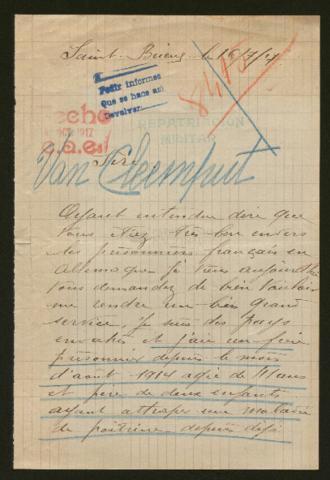 Saint-Brieuc le 16/7/17
Pedir informes
que se hace así
devolver
8485
REPATRIACIÓN
MILITAR
1917
Sire
Van Cleemput
Ayant entendu dire que
vous étiez très bon envers
les prisonniers français en
Allemagne je viens aujourd'hui
vous demander de bien vouloir
me rendre un bien grand
service, je suis des pays
envahis et j'ai un frère
prisonnier depuis le mois
d'août 1914 agé de ans
et père de deux enfants
ayant attrapé une maladie
de poitrine depuis déjà